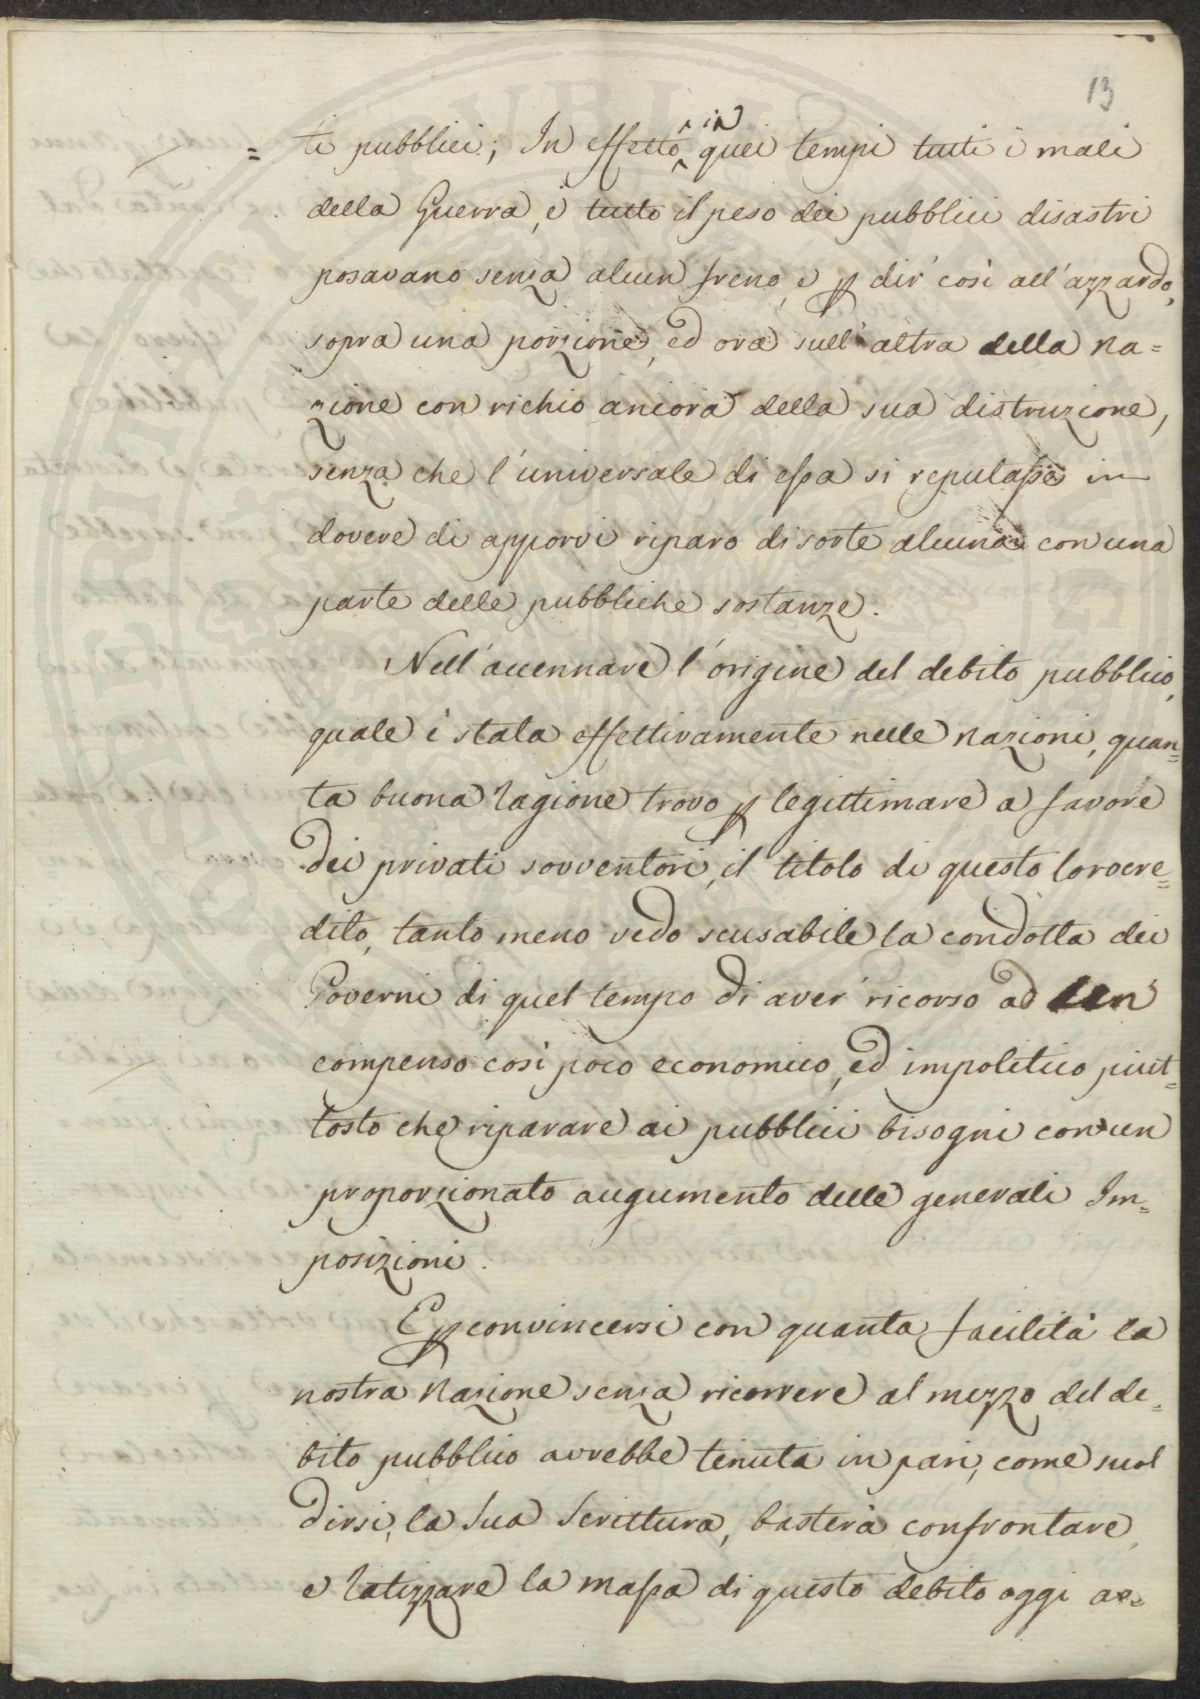 13
= ti pubblici; In effetto in quei tempi tutti i mali
della Guerra, e tutto il peso dei pubblici disastri
posavano senza alcun freno, e p dir' così all'azzardo,
sopra una porzione, ed ora sull'altra della na=
zione con richio ancora della sua distruzione,
senza che l'universale di essa si reputasse in
dovere di apporvi riparo di sorte alcuna con una
parte delle pubbliche sostanze.
Nell'accennare l'origine del debito pubblico,
quale è stata effettivamente nelle nazioni, quan=
ta buona ragione trovo p legittimare a favore
dei privati sovventori, il titolo di questo loro cre=
dito, tanto meno vedo scusabile la condotta dei
Governi di quel tempo di aver' ricorso ad un'
compenso così poco economico, ed impolitico piut=
tosto che riparare ai pubblici bisogni con un
proporzionato augumento delle generali Im=
posizioni.
E p convincersi con quanta facilità la
nostra Nazione senza ricorrere al mezzo del de=
bito pubblico avrebbe tenuta in pari, come suol
dirsi, la sua Scrittura, basterà confrontare,
e ratizzare la massa di questo debito oggi ac=